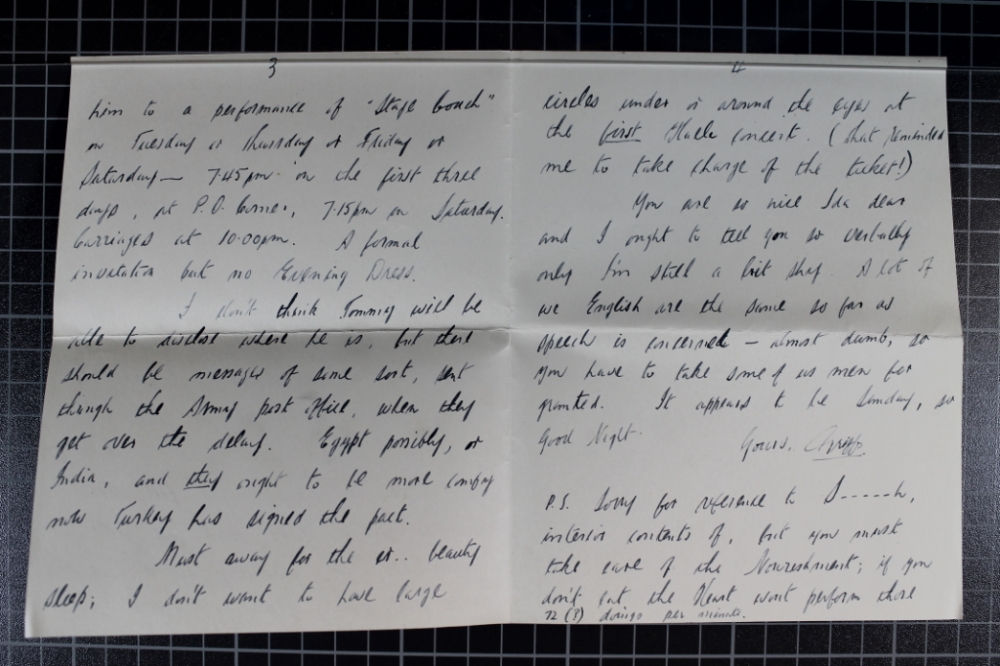 3
him to a performance of "Stage Coach"
on Tuesday or Thursday or Friday or
Saturday — 7.45pm on the first three
days, at P.O. Corner, 7.15pm on Saturday.
Carriages at 10.00pm. A formal
invitation but no Evening Dress.
I don't think Tommy will be
able to disclose where he is, but there
should be messages of some sort, sent
through the Army post office, when they
get over the delay. Egypt possibly, or
India, and they ought to be more comfy
now Turkey has signed the pact.
Must away for the er.. beauty
sleep; I don't want to have large
4
circles under or around the eyes at
the first Halle concert. (that reminded
me to take charge of the ticket!)
You are so nice Ida dear
and I ought to tell you so verbally
only I'm still a bit shy. A lot of
we English are the same so far as
speech is concerned — almost dumb, so
you have to take some of us men for
granted. It appears to be Sunday, so
Good Night.
Yours,
P.S. Sorry for reference to S-----h,
interior contents of, but you must
take care of the Nourishment; if you
don't eat the Heart won't perform those
72 (?) doings per minute.